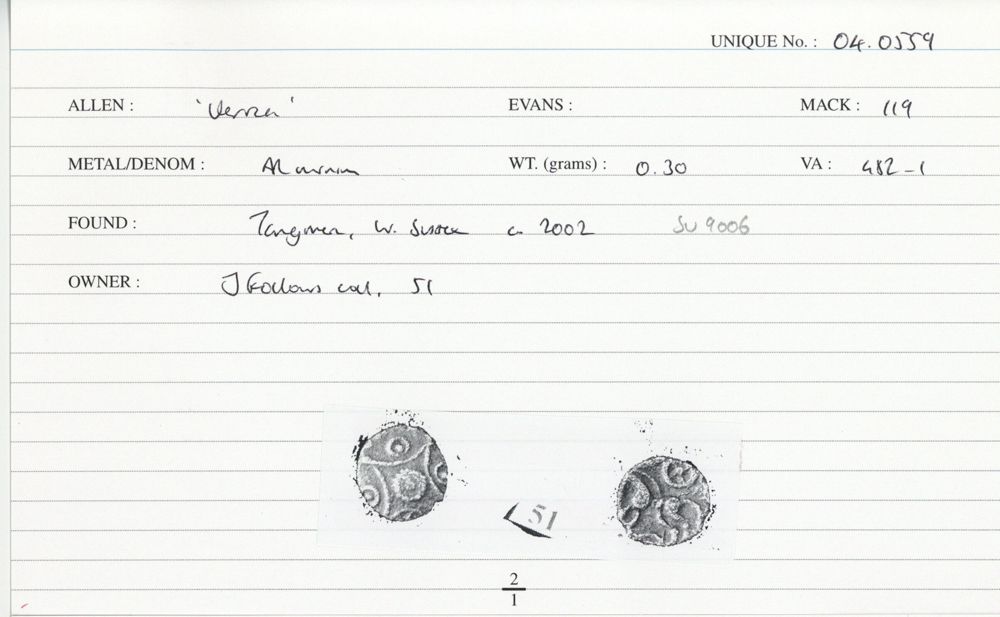 UNIQUE No. : 04.0559
ALLEN : 'Verica' EVANS : MACK : 119
METAL/DENOM : AR WT. (grams) : 0.30 VA : 482-1
FOUND : Tangmere, W. Sussex c. 2002 SU 9006
OWNER : J Follows coll, 51
51
2
1